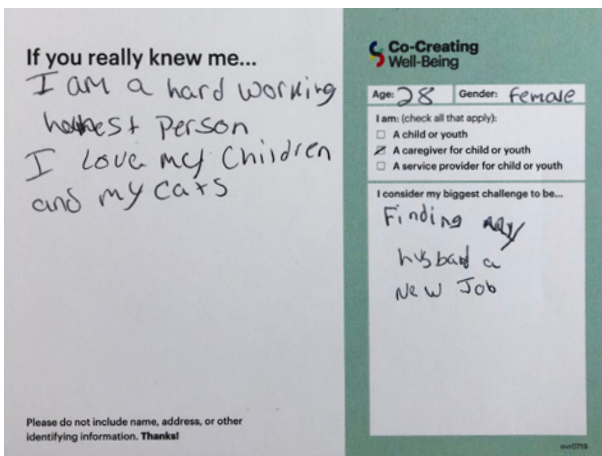 If you really knew me...
I am a hard working
honest person
I Love my Children
and my cats
Please do not include name, address, or other
identifying information. Thanks!
Co-Creating
Well-Being
Age: 28 Gender: female
I am: (check all that apply):
A child or youth
A caregiver for child or youth
A service provider for child or youth
I consider my biggest challenge to be...
Finding my
husband a
New Job